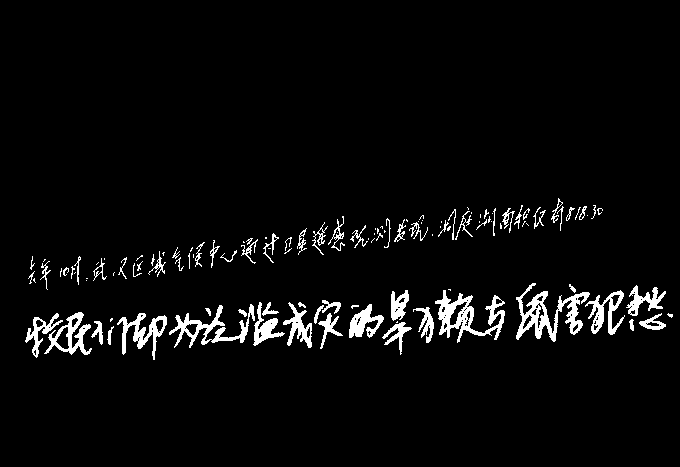 去年10月,武汉区域气候中心通过卫星遥感观测发现,洞庭湖面积仅有818.30
牧民们却为泛滥成灾的旱獭与鼠害犯愁.